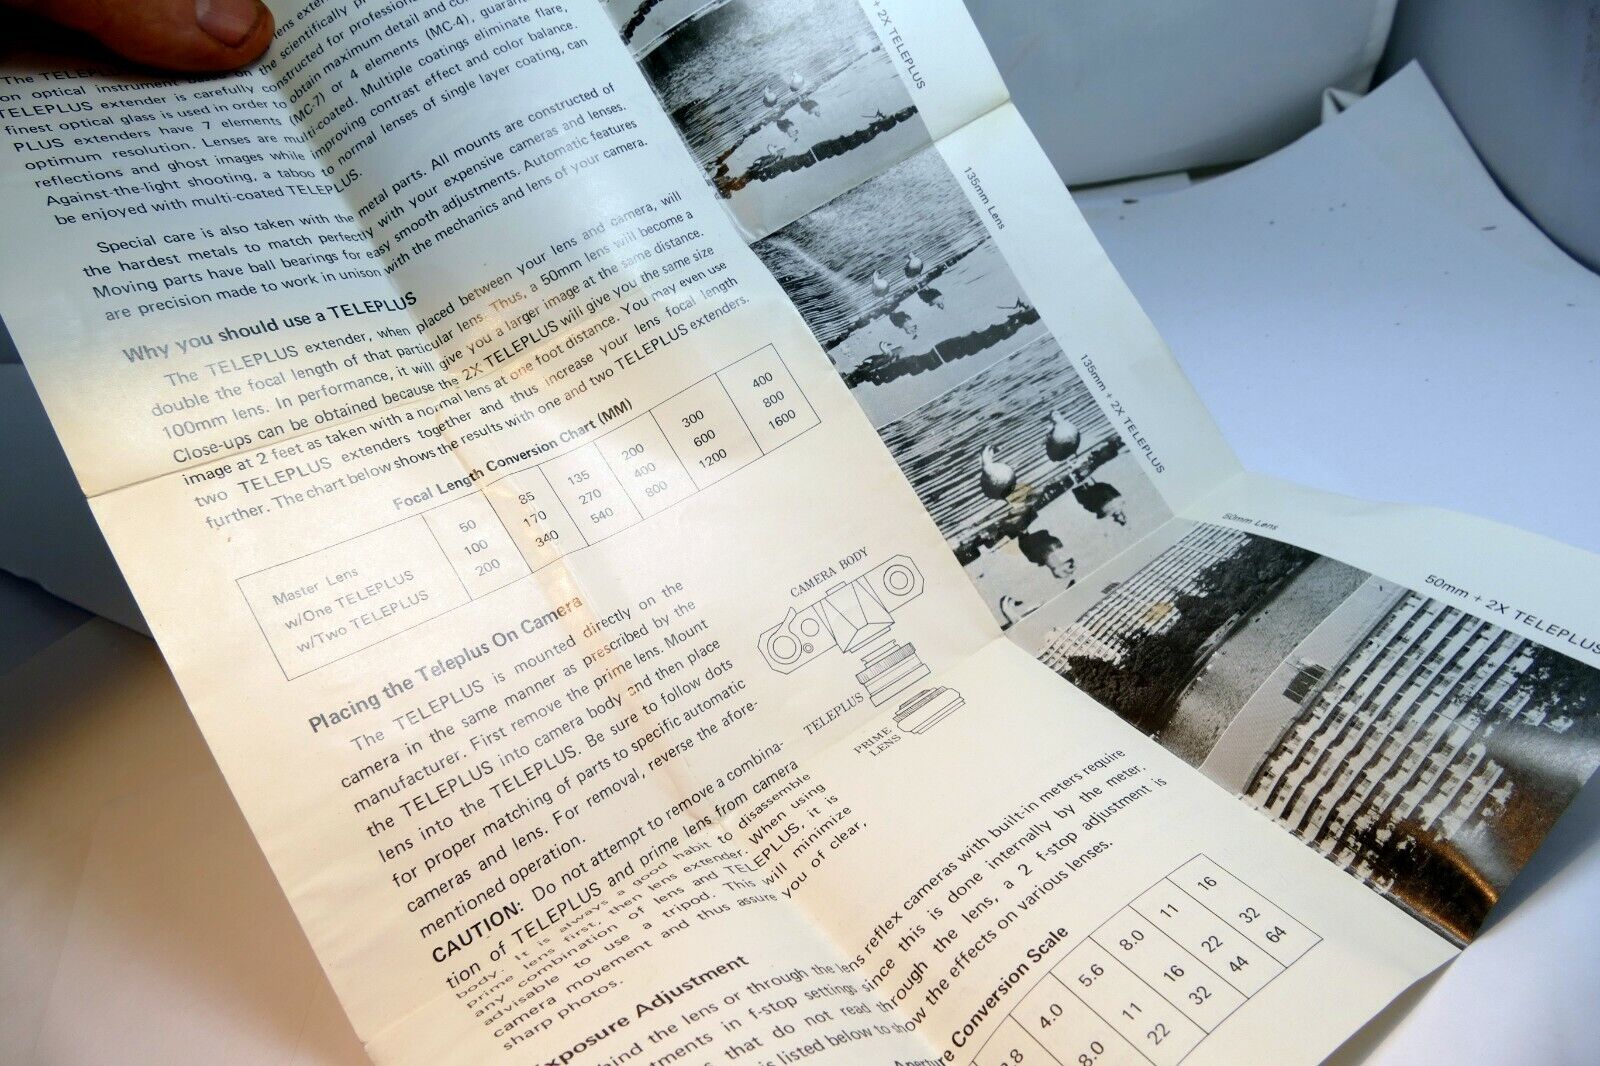 lens exten
The TELEPL
on optical instrument based on the scientifically pr
TELEPLUS extender is carefully constructed for professional
finest optical glass is used in order to obtain maximum detail and co
PLUS extenders have 7 elements (MC-7) or 4 elements (MC-4), guarant
optimum resolution. Lenses are multi-coated. Multiple coatings eliminate flare,
reflections and ghost images while improving contrast effect and color balance.
Against-the-light shooting, a taboo to normal lenses of single layer coating, can
be enjoyed with multi-coated TELEPLUS.
Special care is also taken with the metal parts. All mounts are constructed of
the hardest metals to match perfectly with your expensive cameras and lenses.
Moving parts have ball bearings for easy smooth adjustments. Automatic features
are precision made to work in unison with the mechanics and lens of your camera.
Why you should use a TELEPLUS
The TELEPLUS extender, when placed between your lens and camera, will
double the focal length of that particular lens. Thus, a 50mm lens will become a
100mm lens. In performance, it will give you a larger image at the same distance.
Close-ups can be obtained because the 2X TELEPLUS will give you the same size
image at 2 feet as taken with a normal lens at one foot distance. You may even use
two TELEPLUS extenders together and thus increase your lens focal length
further. The chart below shows the results with one and two TELEPLUS extenders.
Focal Length Conversion Chart (MM)
Master Lens 50 85 135 200 300 400
w/One TELEPLUS 100 170 270 400 600 800
w/Two TELEPLUS 200 340 540 800 1200 1600
Placing the Teleplus On Camera
The TELEPLUS is mounted directly on the
camera in the same manner as prescribed by the
manufacturer. First remove the prime lens. Mount
the TELEPLUS into camera body and then place
lens into the TELEPLUS. Be sure to follow dots
for proper matching of parts to specific automatic
cameras and lens. For removal, reverse the afore-
mentioned operation.
CAUTION: Do not attempt to remove a combina-
tion of TELEPLUS and prime lens from camera
body. It is always a good habit to disassemble
prime lens first, then lens extender. When using
any combination of lens and TELEPLUS, it is
advisable to use a tripod. This will minimize
camera movement and thus assure you of clear,
sharp photos.
CAMERA BODY
TELEPLUS
PRIME
LENS
Exposure Adjustment
hind the lens or through the lens reflex cameras with built-in meters require
tments in f-stop settings since this is done internally by the meter.
s that do not read through the lens, a 2 f-stop adjustment is
is listed below to show the effects on various lenses.
Aperture Conversion Scale
2.8 4.0 5.6 8.0 11 16
8.0 11 16 22 32
22 32 44 64
+ 2X TELEPLUS
135mm Lens
135mm + 2X TELEPLUS
50mm Lens
50mm + 2X TELEPLUS